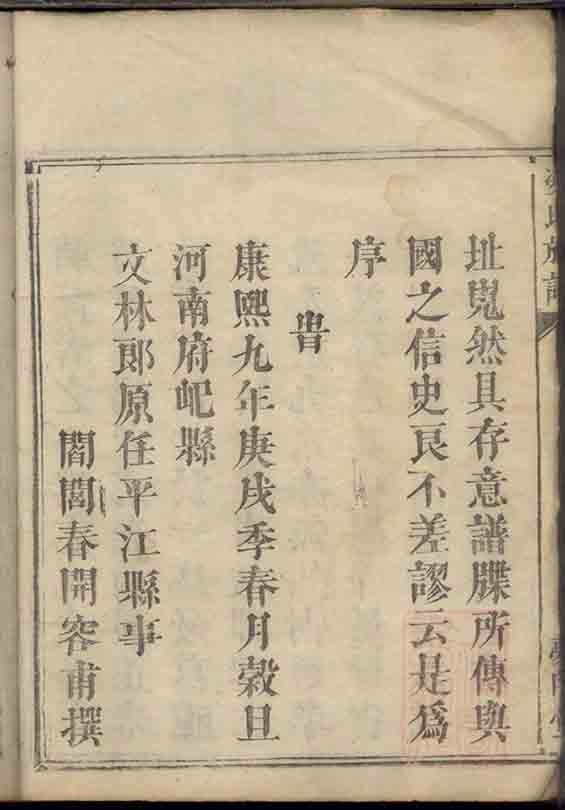 址嵬然具存意譜牒所傳與
國之信史良不差謬云是為
序
旹
康熙九年庚戌季春月穀旦
河南府屺縣
文林郎原任平江縣事
閻閭春開容甫撰